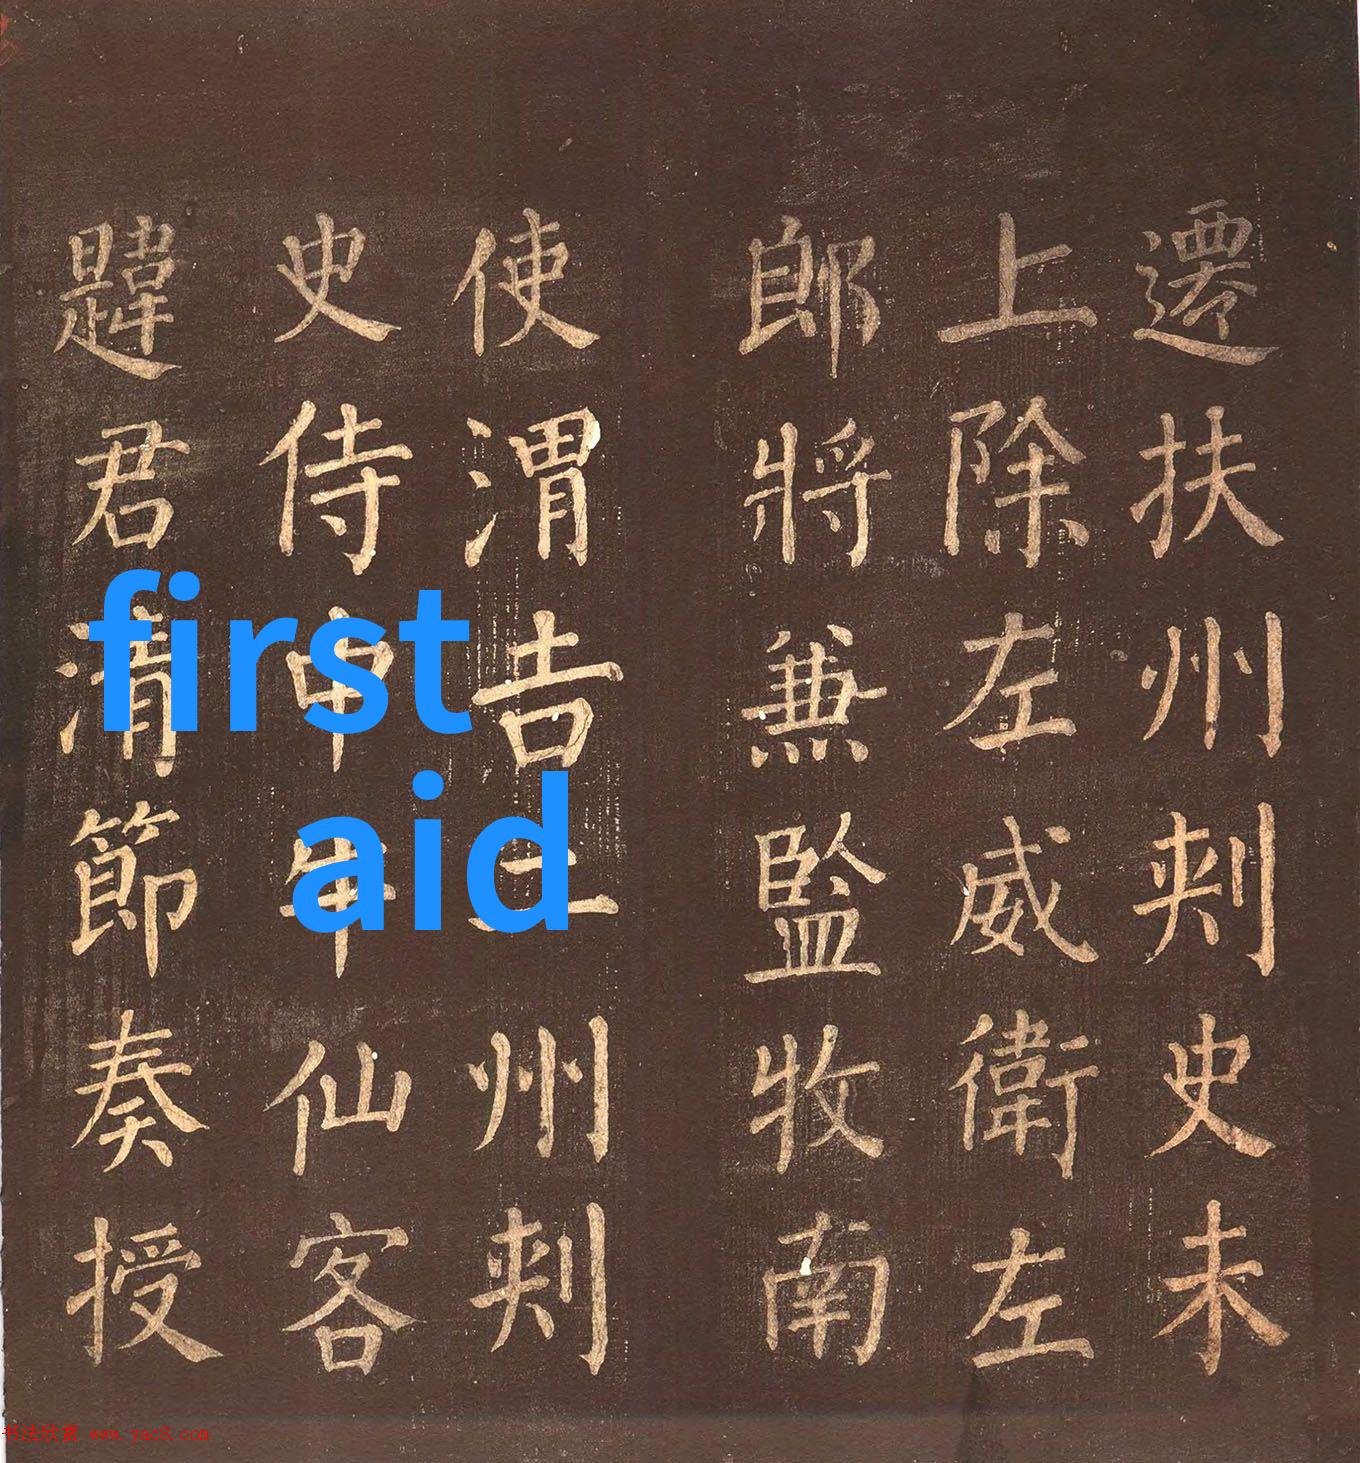 遷扶州刾史未
上除左威衛左
郎將兼監牧南
使渭吉二州刾
史侍中牛仙客
韙君清節奏授
first
aid
书法欣赏 www.yac8.com